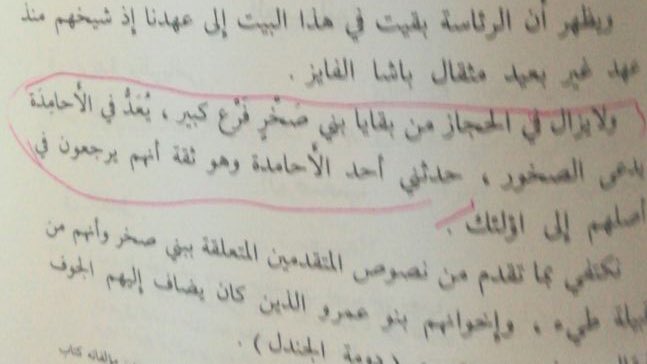 ويظهر أن الرئاسة بقيت في هذا البيت إلى عهدنا إذ شيخهم منذ
عهد غير بعيد مثقال باشا الفايز .
ولايزال في الحجاز من بقايا بني صَخْرٍ فَرْع كبير، يُعَدُّ في الأَحامِدَة
يدعى الصخور ، حدثني أحد الأحامدة وهو ثقة أنهم يرجعون في
أصلهم إلى اولئك .
نكتفي بما تقدم من نصوص المتقدمين المتعلقة ببني صخر وأنهم من
قبيلة طيء ، وإخوانهم بنو عمرو الذين كان يضاف إليهم الجوف
(دومة الجندل) .
كتاب